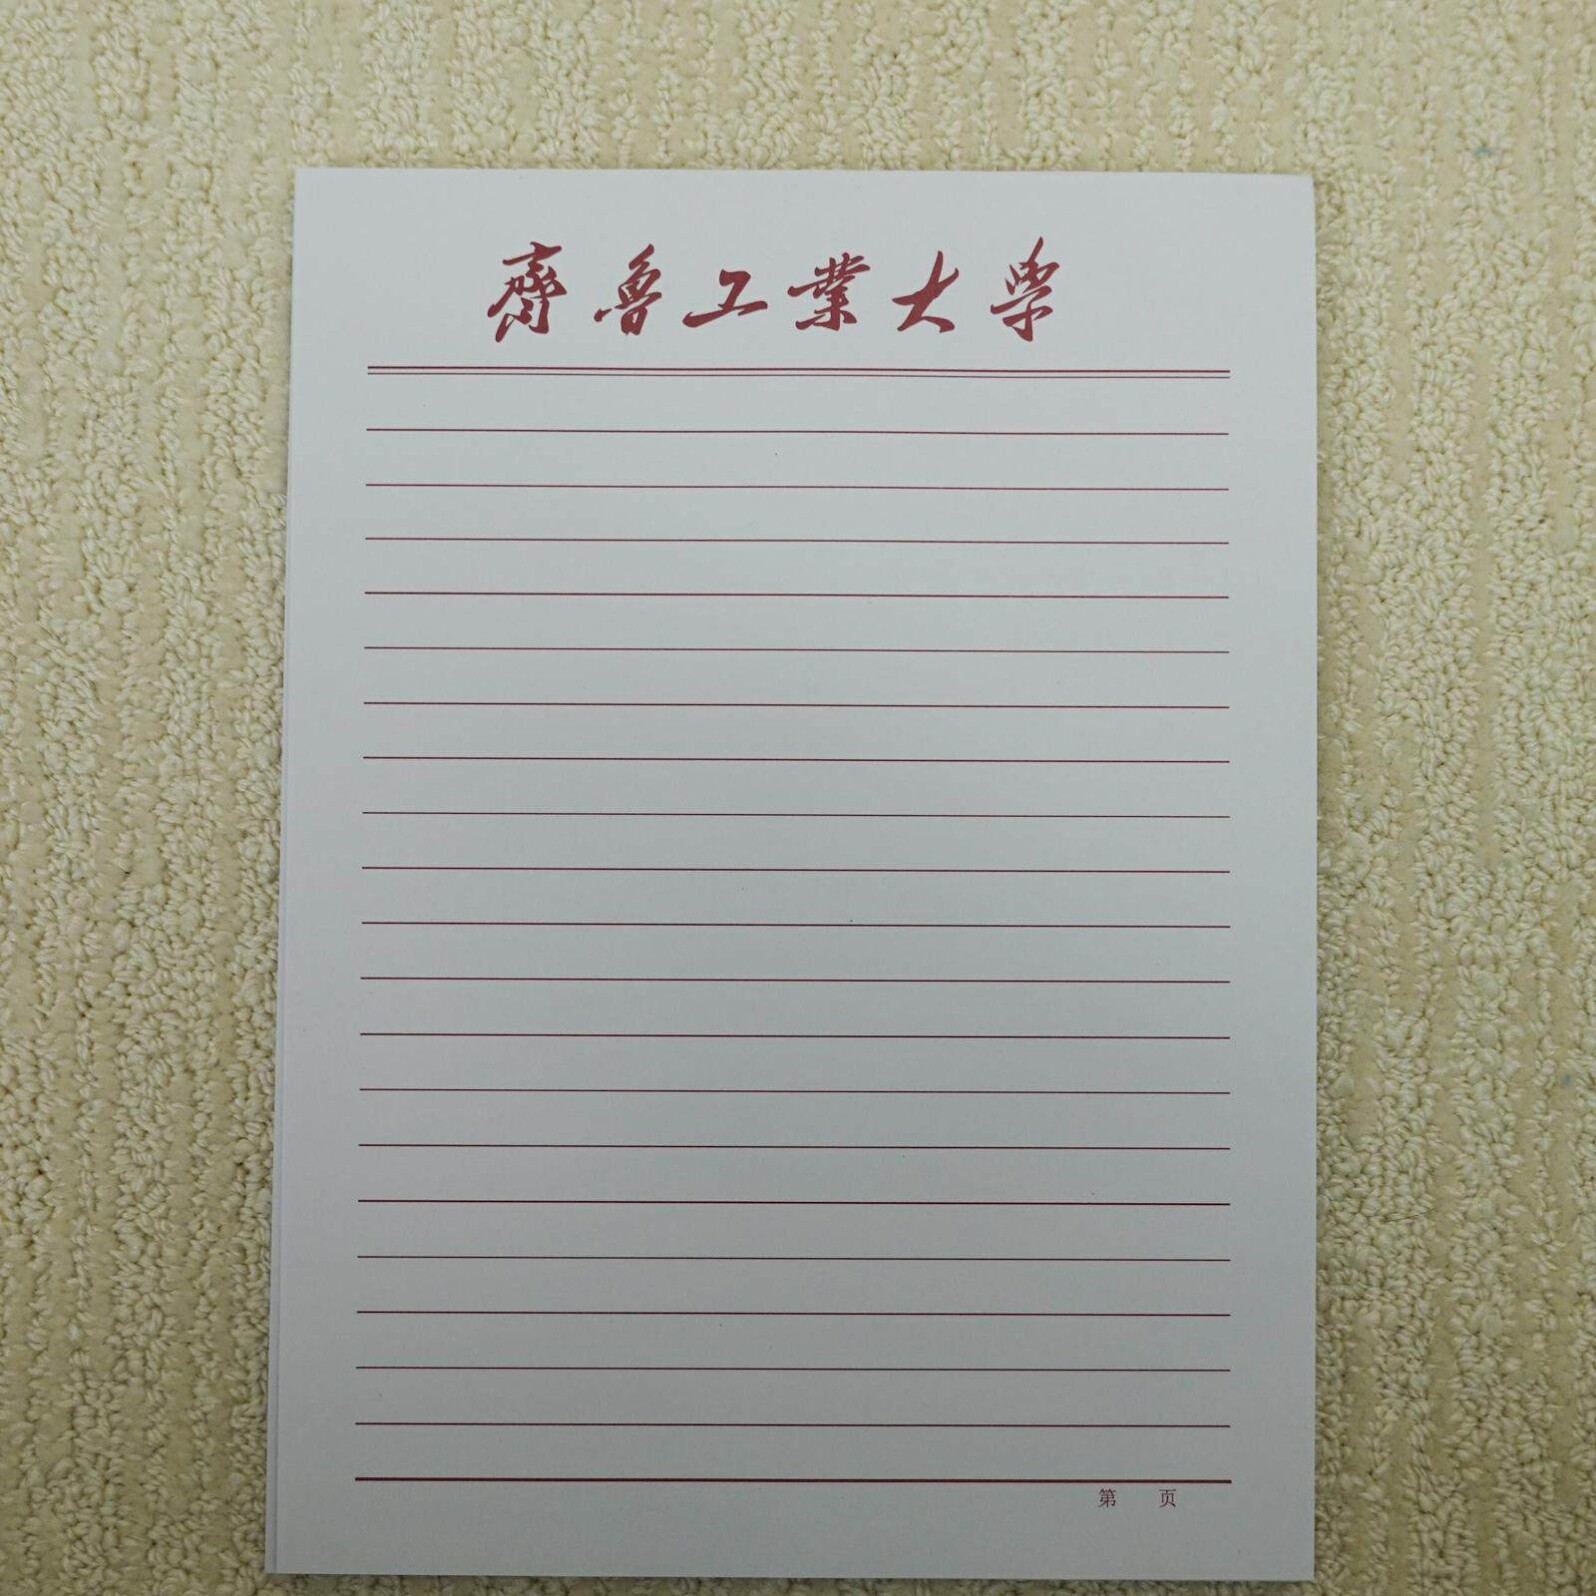 齊魯工業大學
第 页